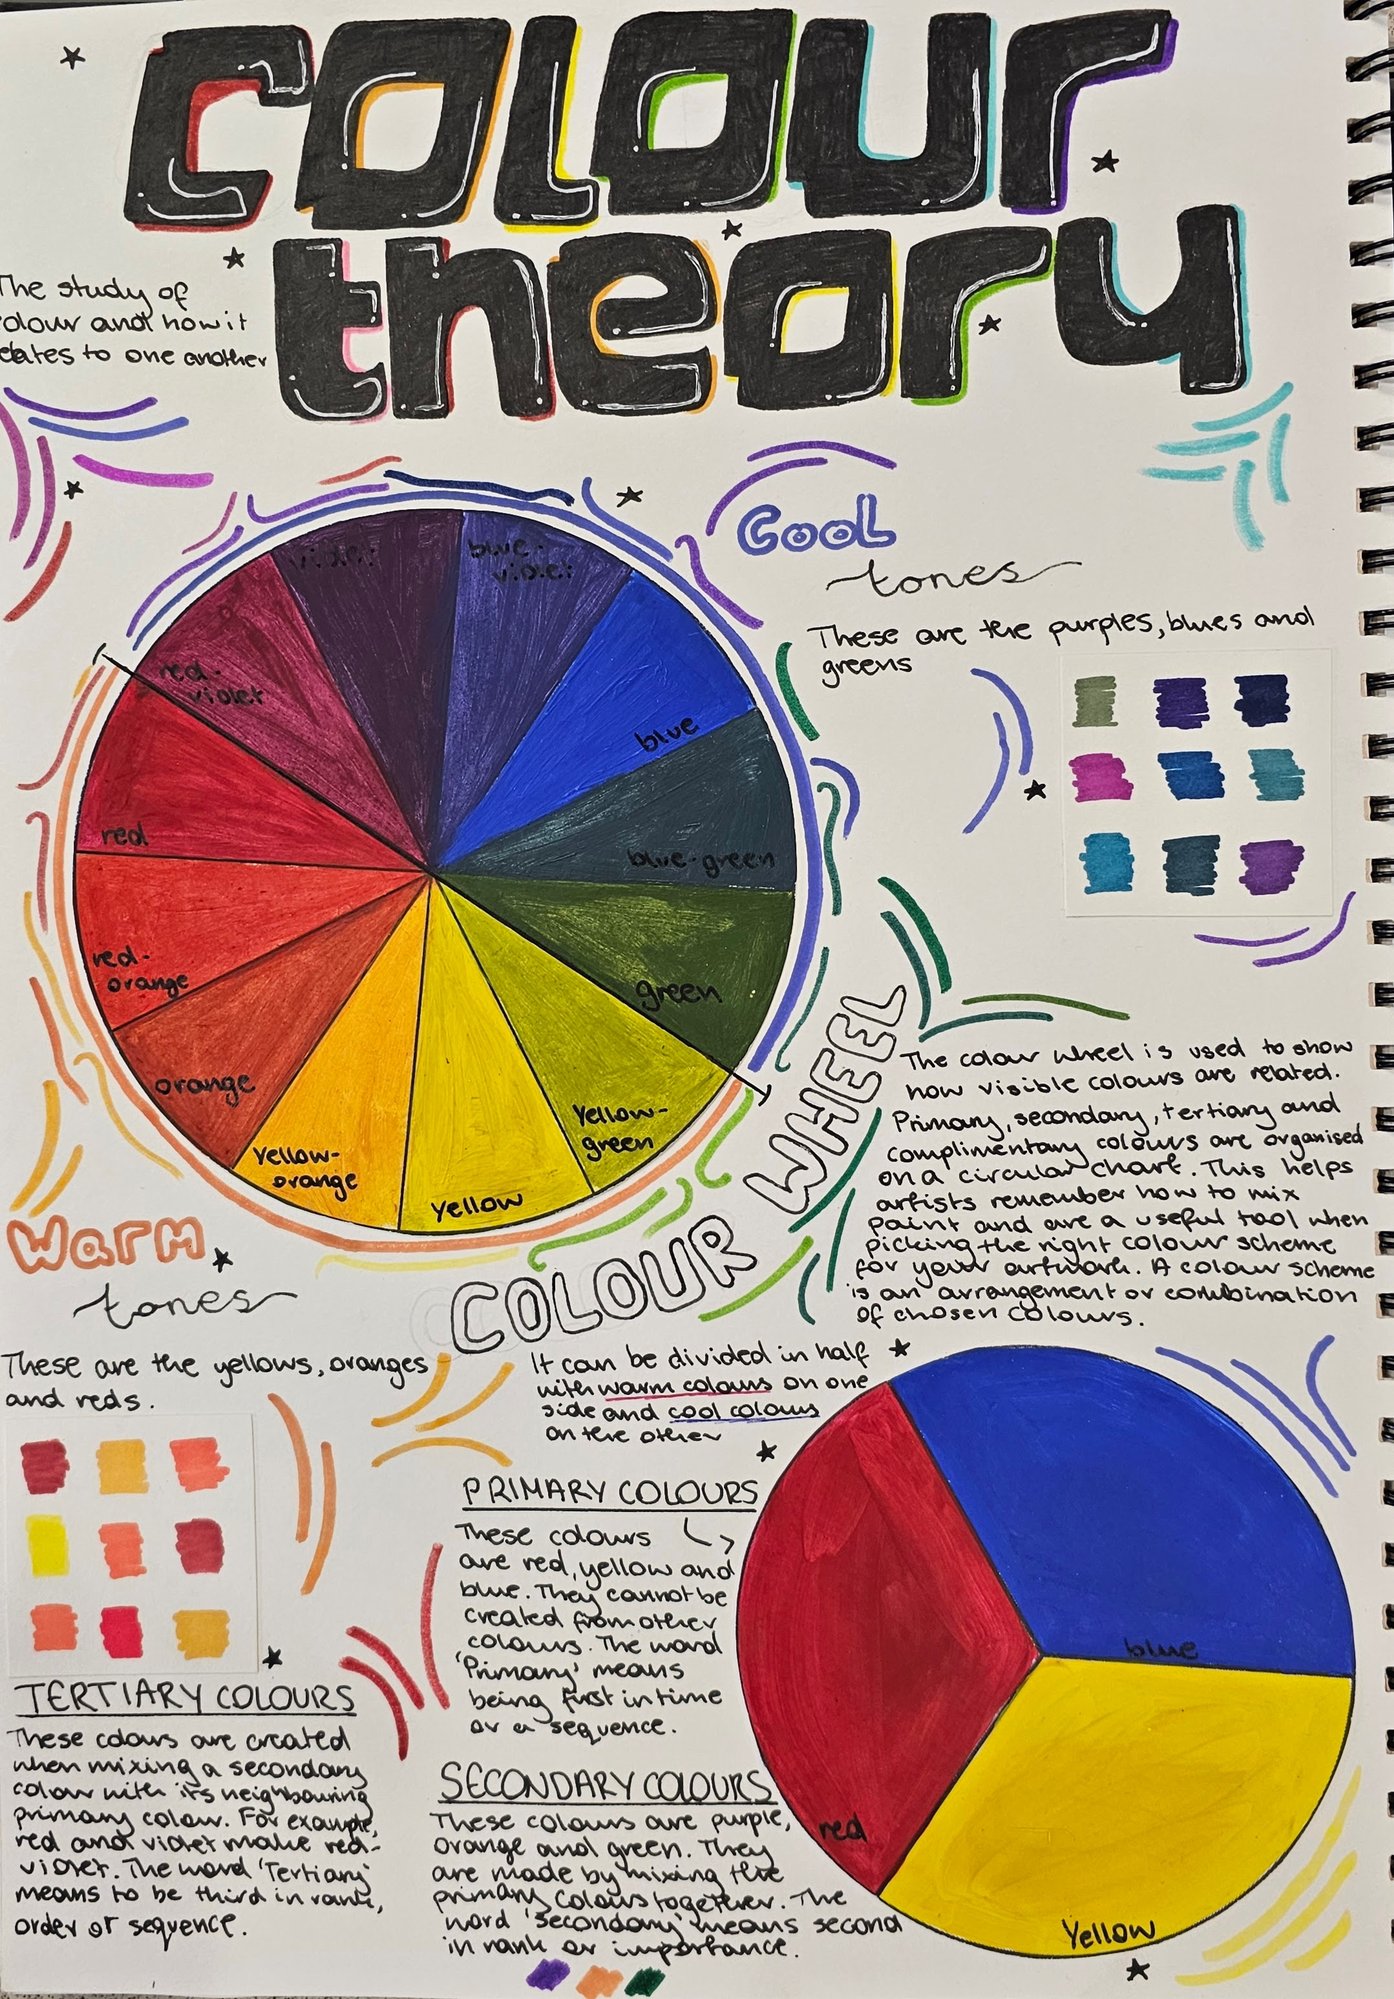 colour
theory
The study of
colour and how it
relates to one another
violet
blue-
violet
red-
violet
blue
red
blue-green
red-
orange
green
orange
Yellow-
orange
Yellow
Yellow-
green
Cool
tones
These are the purples, blues and
greens
Warm
tones
These are the yellows, oranges
and reds.
COLOUR WHEEL
The colour wheel is used to show
how visible colours are related.
Primary, secondary, tertiary and
complimentary colours are organised
on a circular chart. This helps
artists remember how to mix
paint and are a useful tool when
picking the right colour scheme
for your artwork. A colour scheme
is an arrangement or combination
of chosen colours.
It can be divided in half
with warm colours on one
side and cool colours
on the other
PRIMARY COLOURS
These colours
are red, yellow and
blue. They cannot be
created from other
colours. The word
'Primary' means
being first in time
or a sequence.
SECONDARY COLOURS
These colours are purple,
orange and green. They
are made by mixing the
primary colours together. The
word 'secondary' means second
in rank or importance.
TERTIARY COLOURS
These colours are created
when mixing a secondary
colour with its neighbouring
primary colour. For example,
red and violet make red-
violet. The word 'Tertiary'
means to be third in rank,
order or sequence.
blue
red
Yellow